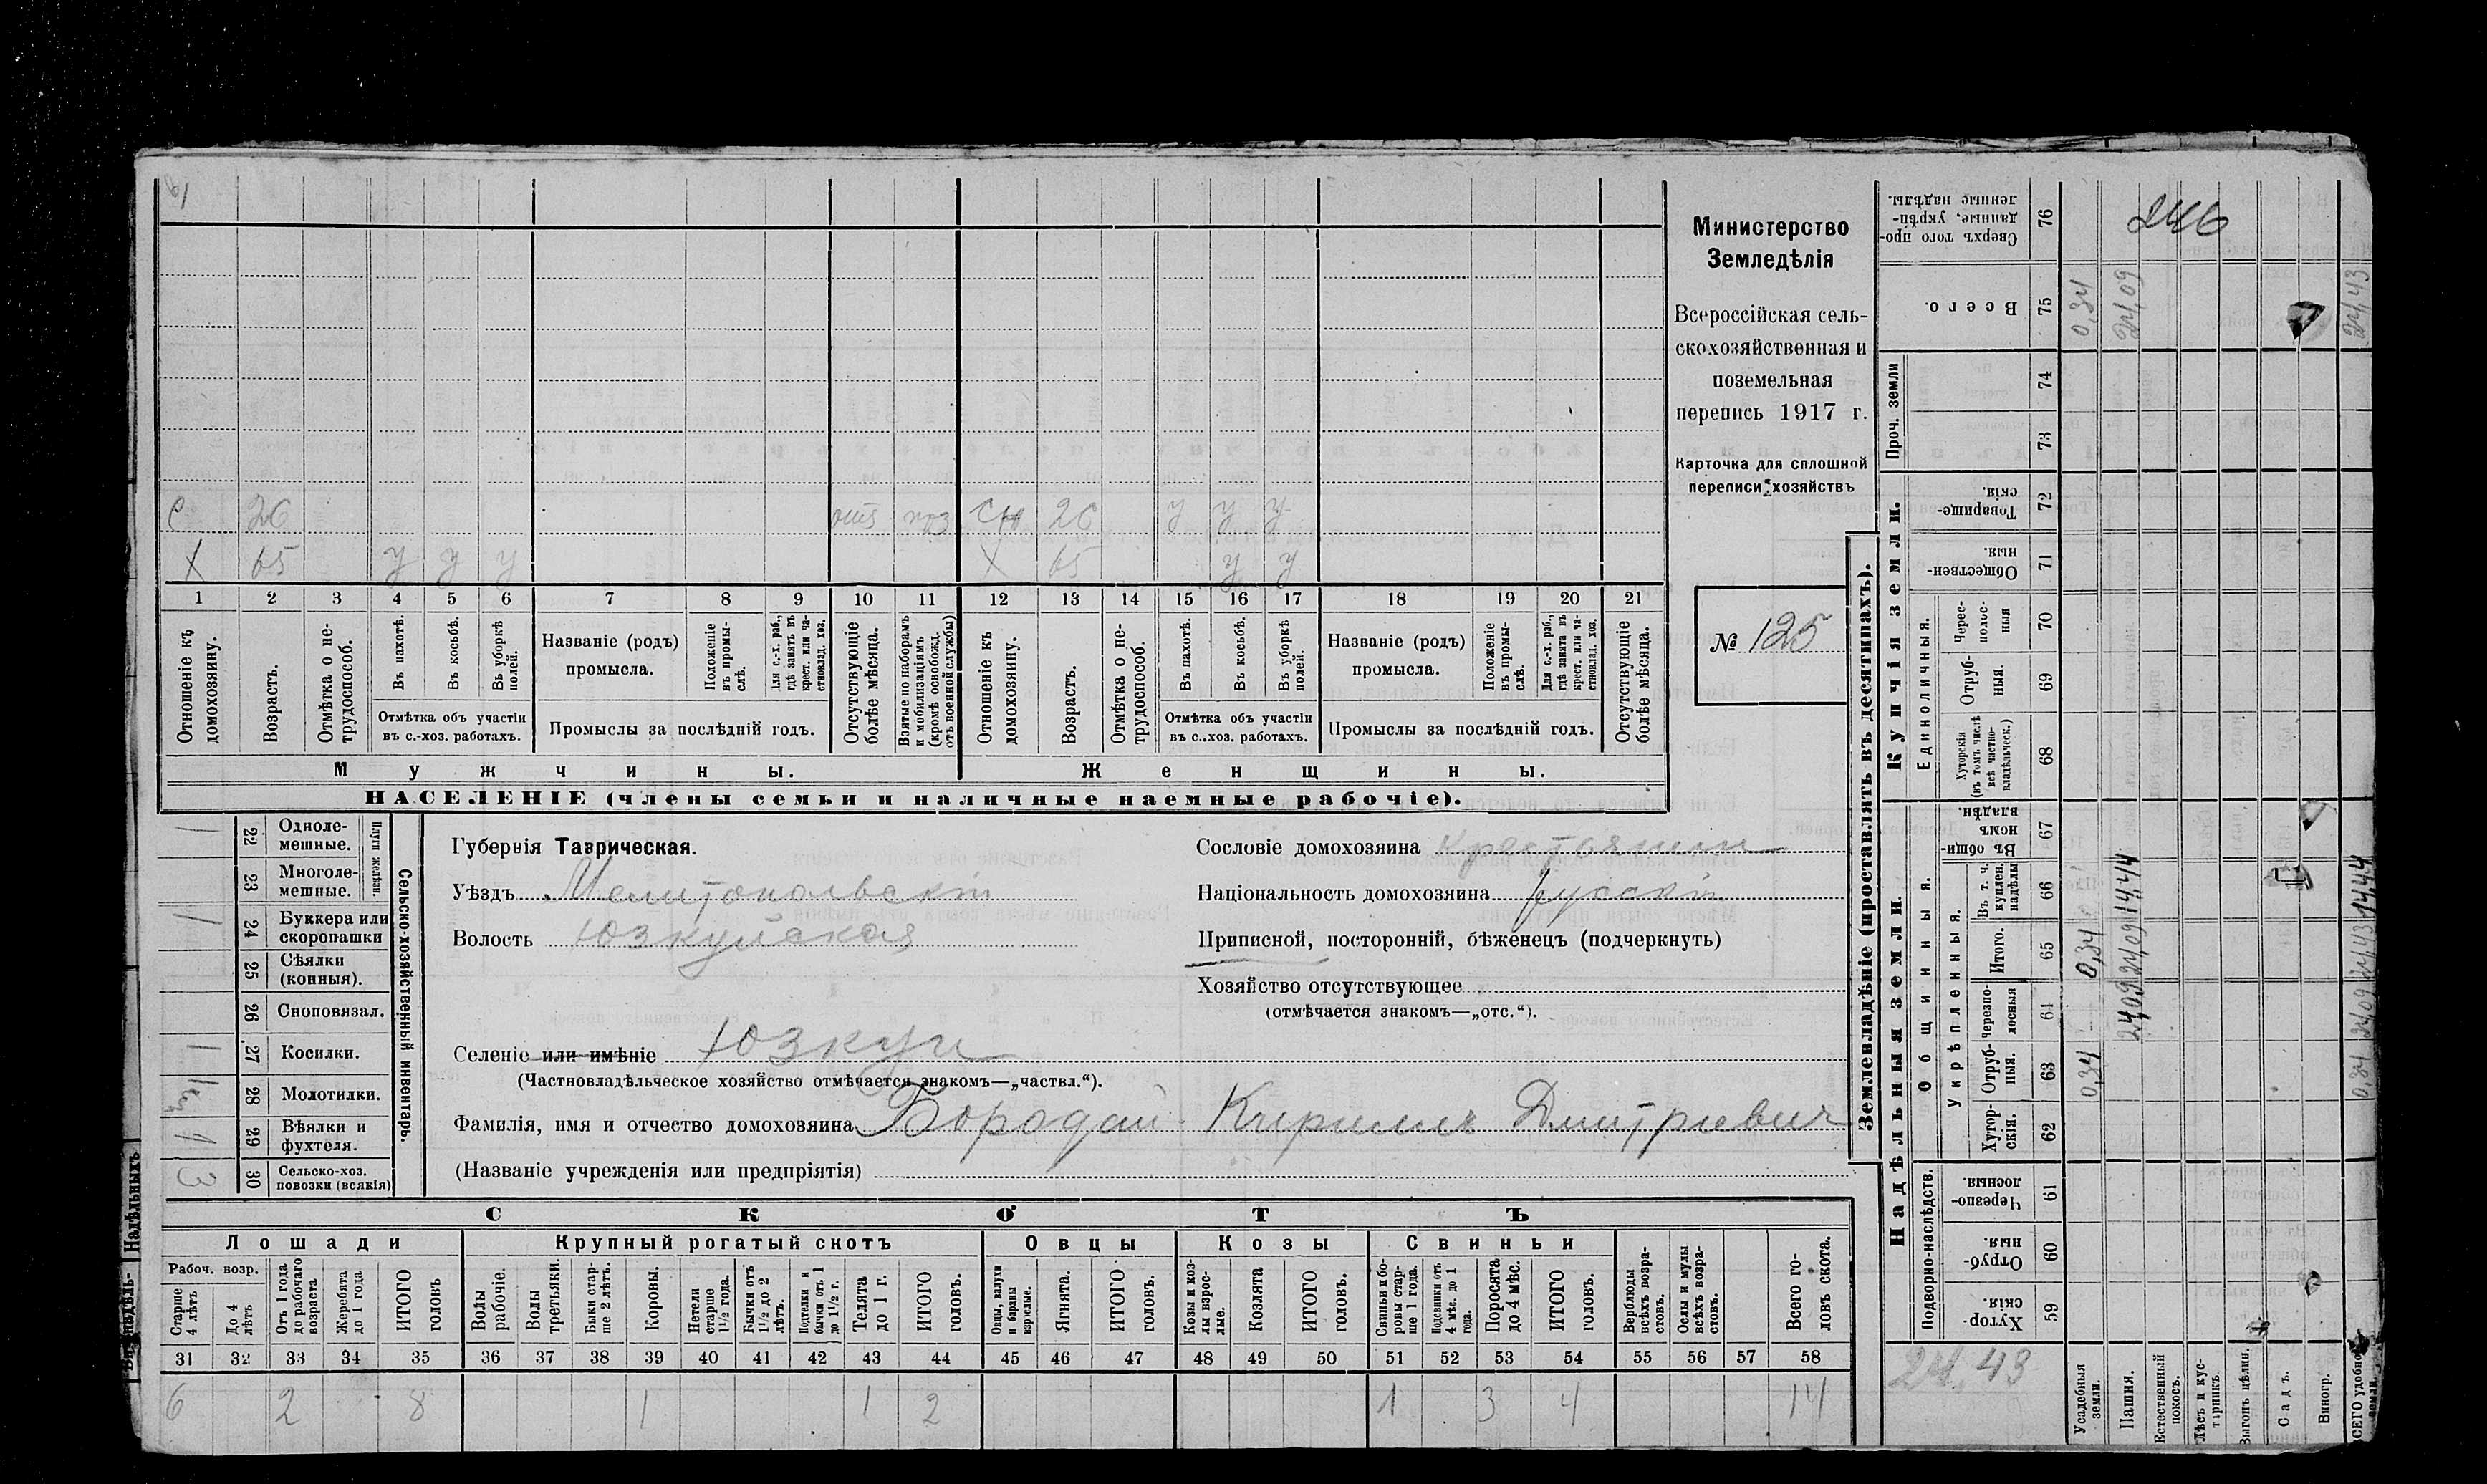 Министерство
Земледѣлія
Всероссійская сель-
скохозяйственная и
поземельная
перепись 1917 г.
Карточка для сплошной
переписи хозяйствъ
№ 125
е 26 26 у у у
X 65 у у у X 65 у у
1 2 3 4 5 6 7 8 9 10 11 12 13 14 15 16 17 18 19 20 21
Отношеніе къ домохозяину.
Возрастъ.
Отмѣтка о не-трудоспособ.
Въ пахотѣ.
Въ косьбѣ.
Въ уборкѣ полей.
Отмѣтка объ участіи
въ с.-хоз. работахъ.
Названіе (родъ)
промысла.
Положеніе въ промы-слѣ.
Для с.-х. раб., гдѣ занятъ въ крест. или ча-стновлад. хоз.
Промыслы за послѣдній годъ.
Отсутствующіе болѣе мѣсяца.
Взятые по наборамъ и мобилизаціямъ (кромѣ освобожд. отъ военной службы)
Отношеніе къ домохозяину.
Возрастъ.
Отмѣтка о не-трудоспособ.
Въ пахотѣ.
Въ косьбѣ.
Въ уборкѣ полей.
Отмѣтка объ участіи
въ с..хоз. работахъ.
Названіе (родъ)
промысла.
Положеніе въ промы-слѣ.
Для с.-х. раб., гдѣ занята въ крест. или ча-стновлад. хоз.
Промыслы за послѣдній годъ.
Отсутствующіе болѣе мѣсяца.
Мужчины.
Женщины.
НАСЕЛЕНІЕ (члены семьи и наличные наемные рабочіе).
Сельско-хозяйственный инвентарь.
Плуги желѣзн.
1 22 Одноле-мешные.
23 Многоле-мешные.
1 24 Буккера или скоропашки
25 Сѣялки (конныя).
26 Сноповязал.
1 27 Косилки.
28 Молотилки.
1 29 Вѣялки и фухтеля.
3 30 Сельско-хоз. повозки (всякія)
Губернія Таврическая.
Уѣздъ Мелитопольскій
Волость Юзкуйская
Селеніе или имѣніе Юзкуи
(Частновладѣльческое хозяйство отмѣчается знакомъ—„частвл.“).
Фамилія, имя и отчество домохозяина Бородай Кириллъ Дмитріевич
(Названіе учрежденія или предпріятія)
Сословіе домохозяина крестьянин
Національность домохозяина русскій
Приписной, посторонній, бѣженецъ (подчеркнуть)
Хозяйство отсутствующее
(отмѣчается знакомъ—„отс.“).
СКОТЪ
Лошади
Крупный рогатый скотъ
Овцы
Козы
Свиньи
Рабоч. возр.
Старше 4 лѣтъ
До 4 лѣтъ
Отъ 1 года до рабочаго возраста
Жеребята до 1 года
ИТОГО головъ
Волы рабочіе.
Волы третьяки.
Быки стар-ше 2 лѣтъ.
Коровы.
Нетели старше 1½ года.
Бычки отъ 1½ до 2 лѣтъ.
Подтелки и бычки отъ 1 до 1½ г.
Телята до 1 г.
ИТОГО головъ.
Овцы, валухи и бараны взрослые.
Ягнята.
ИТОГО головъ.
Козы и коз-лы взрос-лые.
Козлята
ИТОГО головъ.
Свиньи и бо-ровы стар-ше 1 года.
Подсвинки отъ 4 мѣс. до 1 года.
Поросята до 4 мѣс.
ИТОГО головъ.
Верблюды всѣхъ возра-стовъ.
Ослы и мулы всѣхъ возра-стовъ.
Всего го-ловъ скота.
31 32 33 34 35 36 37 38 39 40 41 42 43 44 45 46 47 48 49 50 51 52 53 54 55 56 57 58
6 2 8 1 1 2 1 3 4 14
Землевладѣніе (проставлять въ десятинахъ).
Надѣльныя земли.
Купчія земли.
Проч. земли
Подворно-наслѣдств.
Общинныя.
Укрѣпленныя.
Единоличныя.
Хутор-скія. 59
Отруб-ныя. 60
Черезпо-лосныя. 61
Хутор-скія. 62
Отруб-ныя. 63
Черезпо-лосныя 64
Итого. 65
Въ т. ч. куплен. надѣлы 66
Въ общи-номъ владѣн. 67
Хуторскія (въ томъ числѣ всѣ частно-владѣльческ.) 68
Отруб-ныя. 69
Черес-полос-ныя 70
Обществен-ныя. 71
Товарище-скія. 72
73
74
Всего. 75
Сверхъ того про-данные, укрѣп-ленные надѣлы. 76
Усадебныя земли. 0,34 0,34 0,34
Пашня. 24,09 24,09 14,44 24,09
246
Естественный покосъ.
Лѣсъ и кус-тарникъ.
Выгонъ цѣлин.
Садъ.
Виногр.
ВСЕГО удобной земли. 0,34 24,09 24,43 14,44 24,43
24,43
Надѣльныхъ